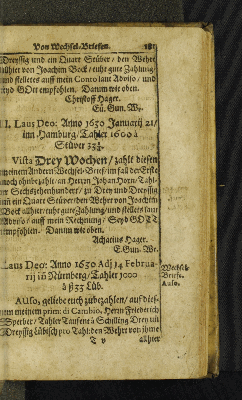 Von Wechsel-Briefen. 181
Dreyssig und ein Quart Stüber / den Wehrt
allhier von Joachim Bock / thut gute Zahlung /
und stellets auff mein Conto laut Adviso / und
seyd GOtt empfohlen. Danum wie oben.
Christoff Hager.
Eu. Gun. W.
II. Laus Deo: Anno 1630 Januarij 21/
im Hamburg / Tahler 1600 à
Stüver 33¼
Vista Drey Wochen / zahlt diesen
meinem Andern Wechsel-Brief / im fall der Erste
noch ohnbezahlt / an Herrn Johan Horn / Tahl-
er Sechszehenhundert / zu Drey und Dreyssig
und ein Quart Stüver / den Wehrt von Joachim
Bock allhier / thut gute Zahlung / und stellets laut
Adviso / auff mein Rechnung / Seyd GOTT
empfohlen. Danum wie oben.
Achatius Hager.
E. Gun. W.
Laus Deo: Anno 1630 Adj 14 Februa-
rij in Nürnberg / Tahler 1000
à ß 33 Lüb.
Auso, geliebe euch zu bezahlen / auf die-
sen meinem prim: di Cambio, Herrn Friederich
Sperber / Tahler Tausent à Schilling Drey un
Dreyssig Lübisch pro Tahl: den Wehrt von ihme
T v allhier
Wechsel-
Briefe.
Auso.